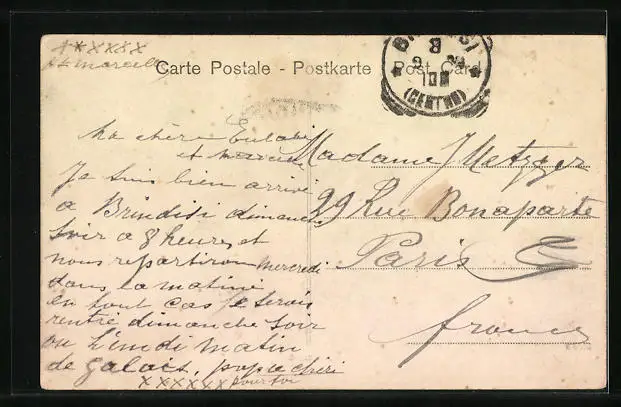 xxxxxx
Carte Postale - Postkarte - Post Card
BRINDISI
8
(CENTRO)
Ma chère
et Marcelle
Je suis bien arrivé
a Brindisi dimanche
soir a 8 heures et
nous repartiron mercredi
dans la matiné
en tout cas je serai
rentré dimanche soir
ou l'undi matin
de galais, papa chéri
xxxxxx pour toi
Madame J Metzger
29 Rue Bonaparte
Paris
france